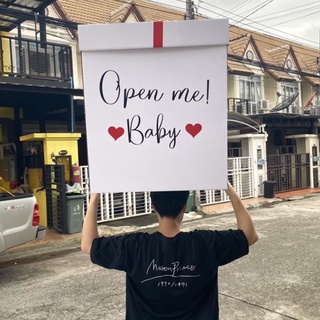 Open me!
Baby
MoonPrince
1990/1991